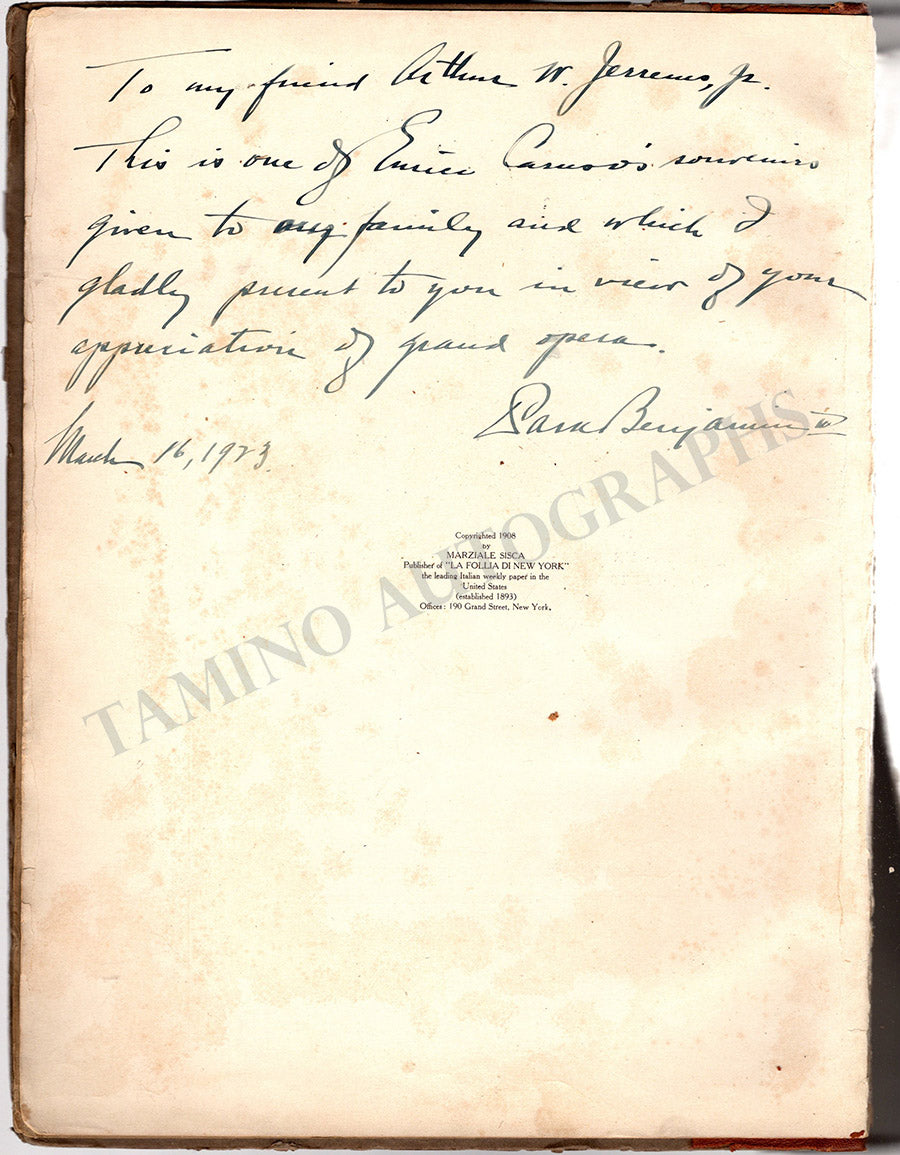 To my friend Arthur W. Jerrems, Jr.
This is one of Enrico Caruso's souvenirs
given to my family and which I
gladly present to you in view of your
appreciation of grand opera.
Park Benjamin
March 16, 1923
Copyrighted 1908
by
MARZIALE SISCA
Publisher of "LA FOLLIA DI NEW YORK"
the leading Italian weekly paper in the
United States
(established 1893)
Offices: 190 Grand Street, New York.
TAMINO AUTOGRAPHS